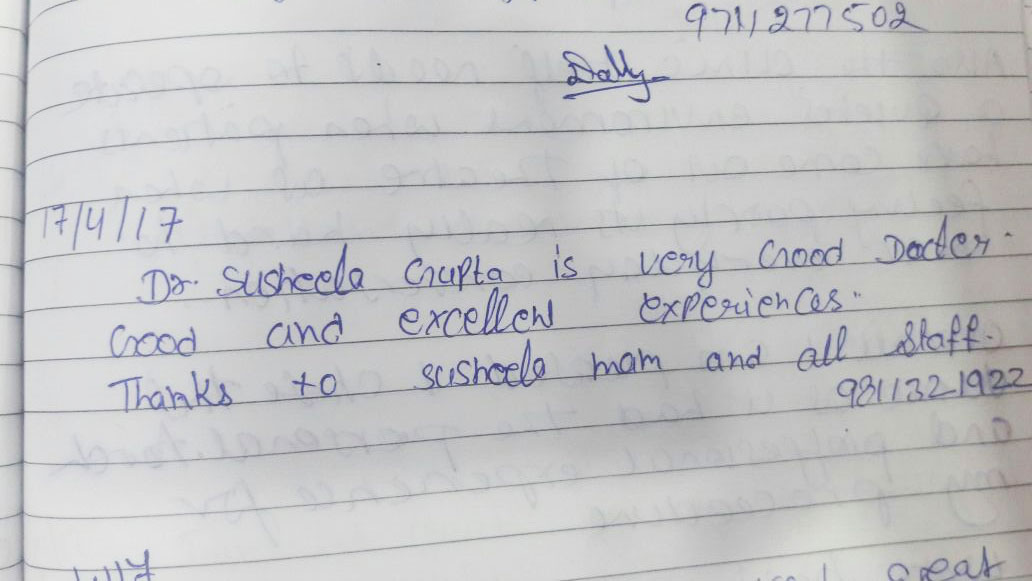 9711277502
Dolly
17/4/17
Dr. Susheela Gupta is very Good Docter.
Good and excellen experiences.
Thanks to susheela mam and all staff.
9811321922
great